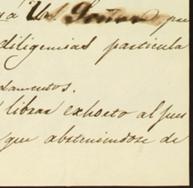 á Ud. Señor
diligencias particula
samentos.
librar exhorto al jues
que absteniendose de